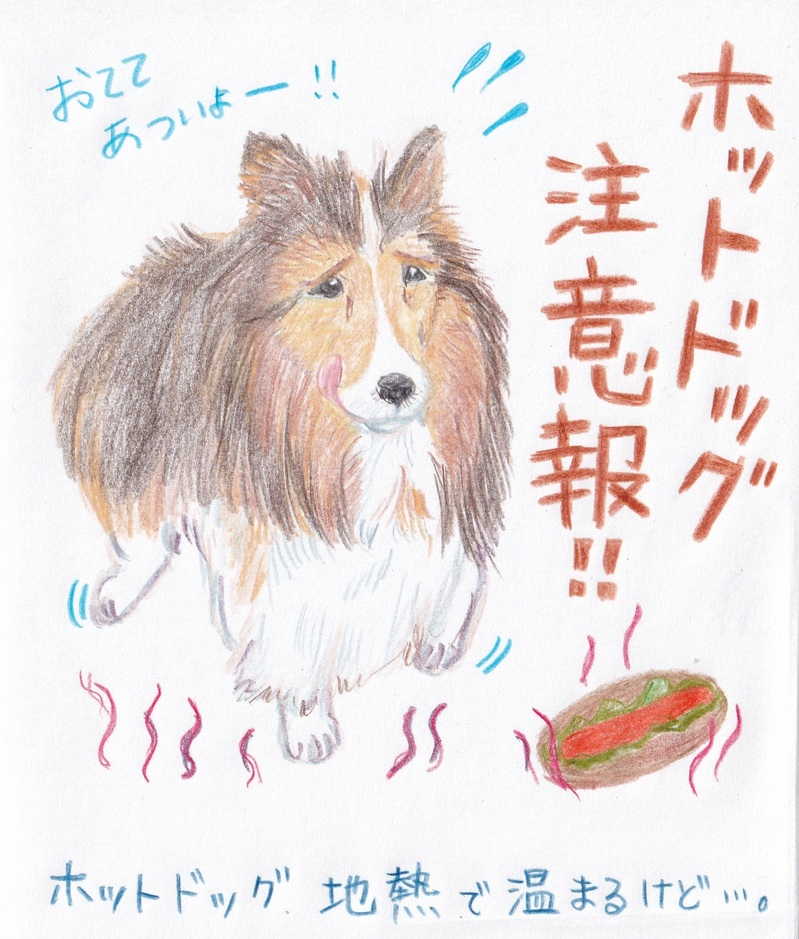 おてて
あついよー!!
ホットドッグ
注意報!!
ホットドッグ 地熱で温まるけど…。